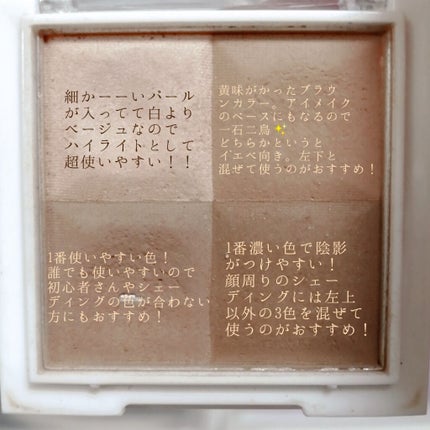 細かーーいパール
が入ってて白より
ベージュなので
ハイライトとして
超使いやすい！！
黄味がかったブラウ
ンカラー。アイメイク
のベースにもなるので
一石二鳥✨
どちらかというと
イエベ向き。左下と
混ぜて使うのがおすすめ！
1番使いやすい色！
誰でも使いやすいので
初心者さんやシェー
ディングの色が合わない
方にもおすすめ！
1番濃い色で陰影
がつけやすい！
顔周りのシェー
ディングには左上
以外の3色を混ぜて
使うのがおすすめ！